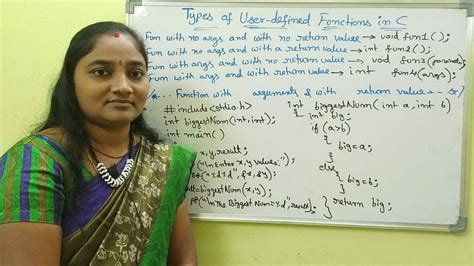 Types of User-defined Fonctions in C
Fun with no args and with no return value → void fun1();
Fun with no args and with a return value → int fun2();
Fun with args and with no return value → void fun3(params);
Fun with args and with return value → int fun4(args);
Function with arguments & with return value -- */
#include<stdio.h>
int biggestNom(int,int);
int main()
x,y,result;
("\nEnter x,y values:");
"%d%d",&x,&y);
result=biggestNom(x,y);
("\nThe Biggest Nom=%d",result);
int biggestNom(int a, int b)
{ int big;
if (a>b)
{
big=a;
}
else
{
big=b;
}
return big;
}